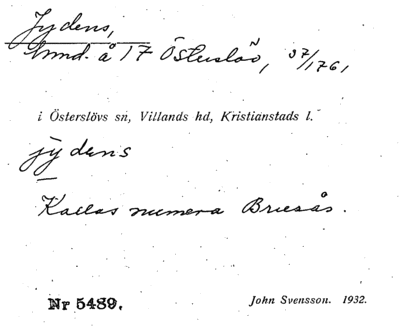 Jydens,
hmd. å 17 Österslöv, 37/1761
i Österslövs sn, Villands hd, Kristianstads l.
jydens
Kallas numera Brusås.
Nr 5489.
John Svensson. 1932.